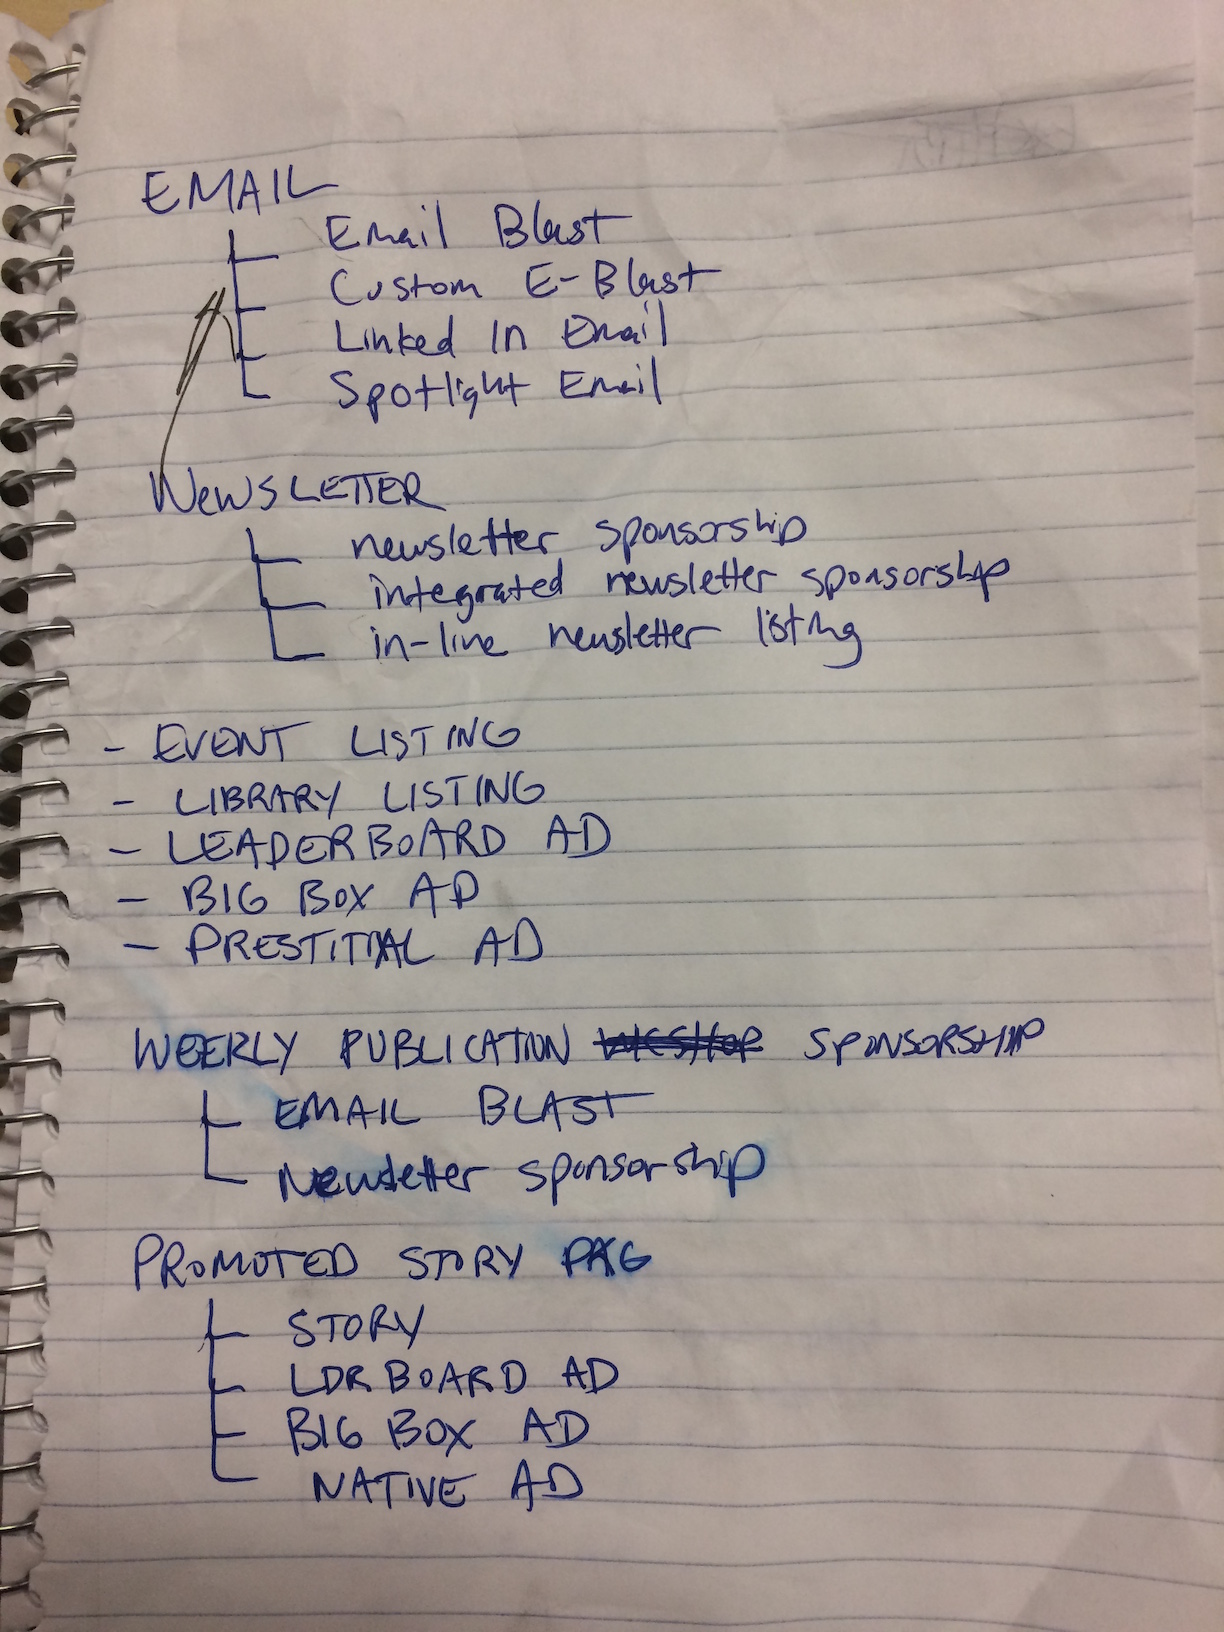 EMAIL
Email Blast
Custom E-Blast
Linked In Email
Spotlight Email
NEWSLETTER
newsletter sponsorship
integrated newsletter sponsorship
in-line newsletter listing
- EVENT LISTING
- LIBRARY LISTING
- LEADERBOARD AD
- BIG BOX AD
- PRESTITIAL AD
WEEKLY PUBLICATION SPONSORSHIP
EMAIL BLAST
Newsletter sponsorship
PROMOTED STORY
STORY
LDRBOARD AD
BIG BOX AD
NATIVE AD